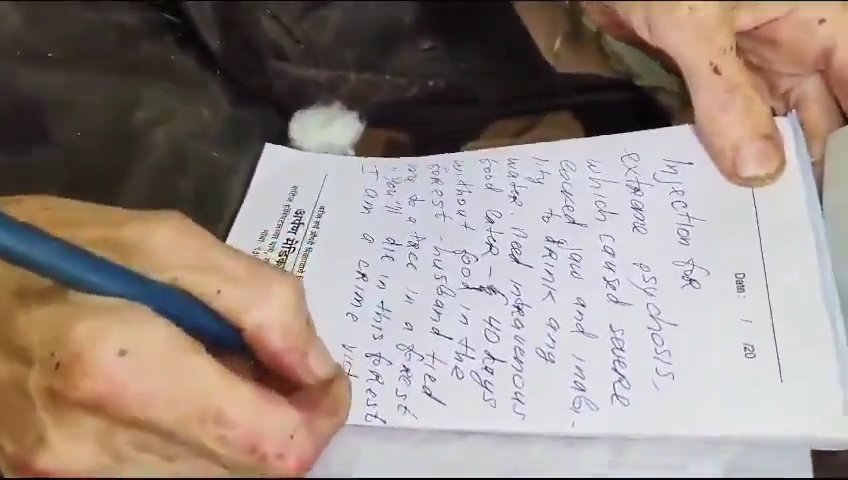 Date: / /20
Injection for
extrame psychosis.
which caused severe
locked jaw and inabi-
lity to drink any
water. need intravenous
food later - 40 days
without food in the
forest - husband tied
me to a tree in a forest
"You'll die in this forest
I am a crime vict